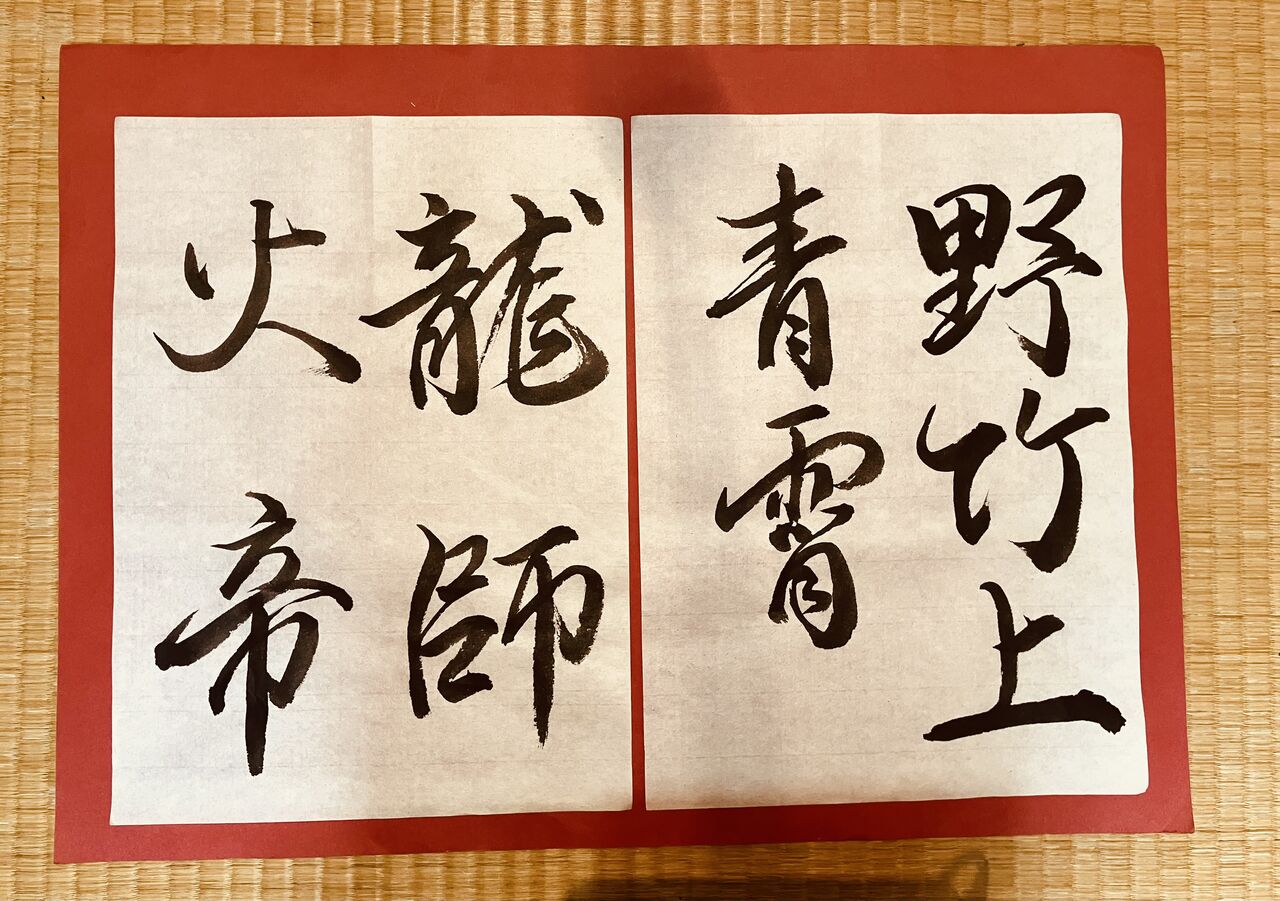 野竹上
青霄
龍師
火帝